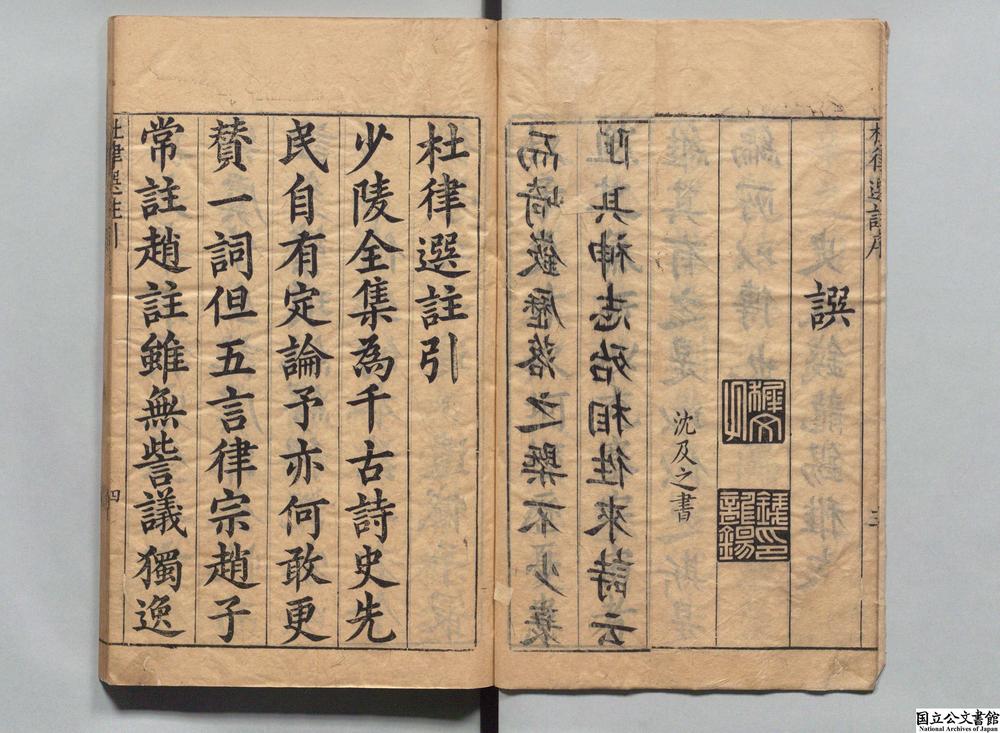 杜律選註序
三
譔
錢印龍錫
沈及之書
其神志殆相徃來詩云
而崎嶔歷落之槩不少衰
杜律選註引
少陵全集為千古詩史先
民自有定論予亦何敢更
贊一詞但五言律宗趙子
常註趙註雖無訾議獨逸
杜律選註引
四
国立公文書館
National Archives of Japan